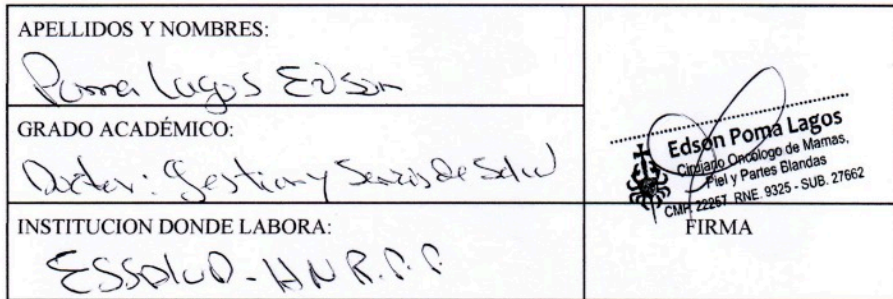 APELLIDOS Y NOMBRES:
Poma Lagos Edson
GRADO ACADÉMICO:
Doctor: Gestion y Servicios de Salud
INSTITUCION DONDE LABORA:
ESSALUD - HNR.P.P
Edson Poma Lagos
Cirujano Oncólogo de Mamas,
Piel y Partes Blandas
CMP. 22257 RNE. 9325 - SUB. 27662
FIRMA